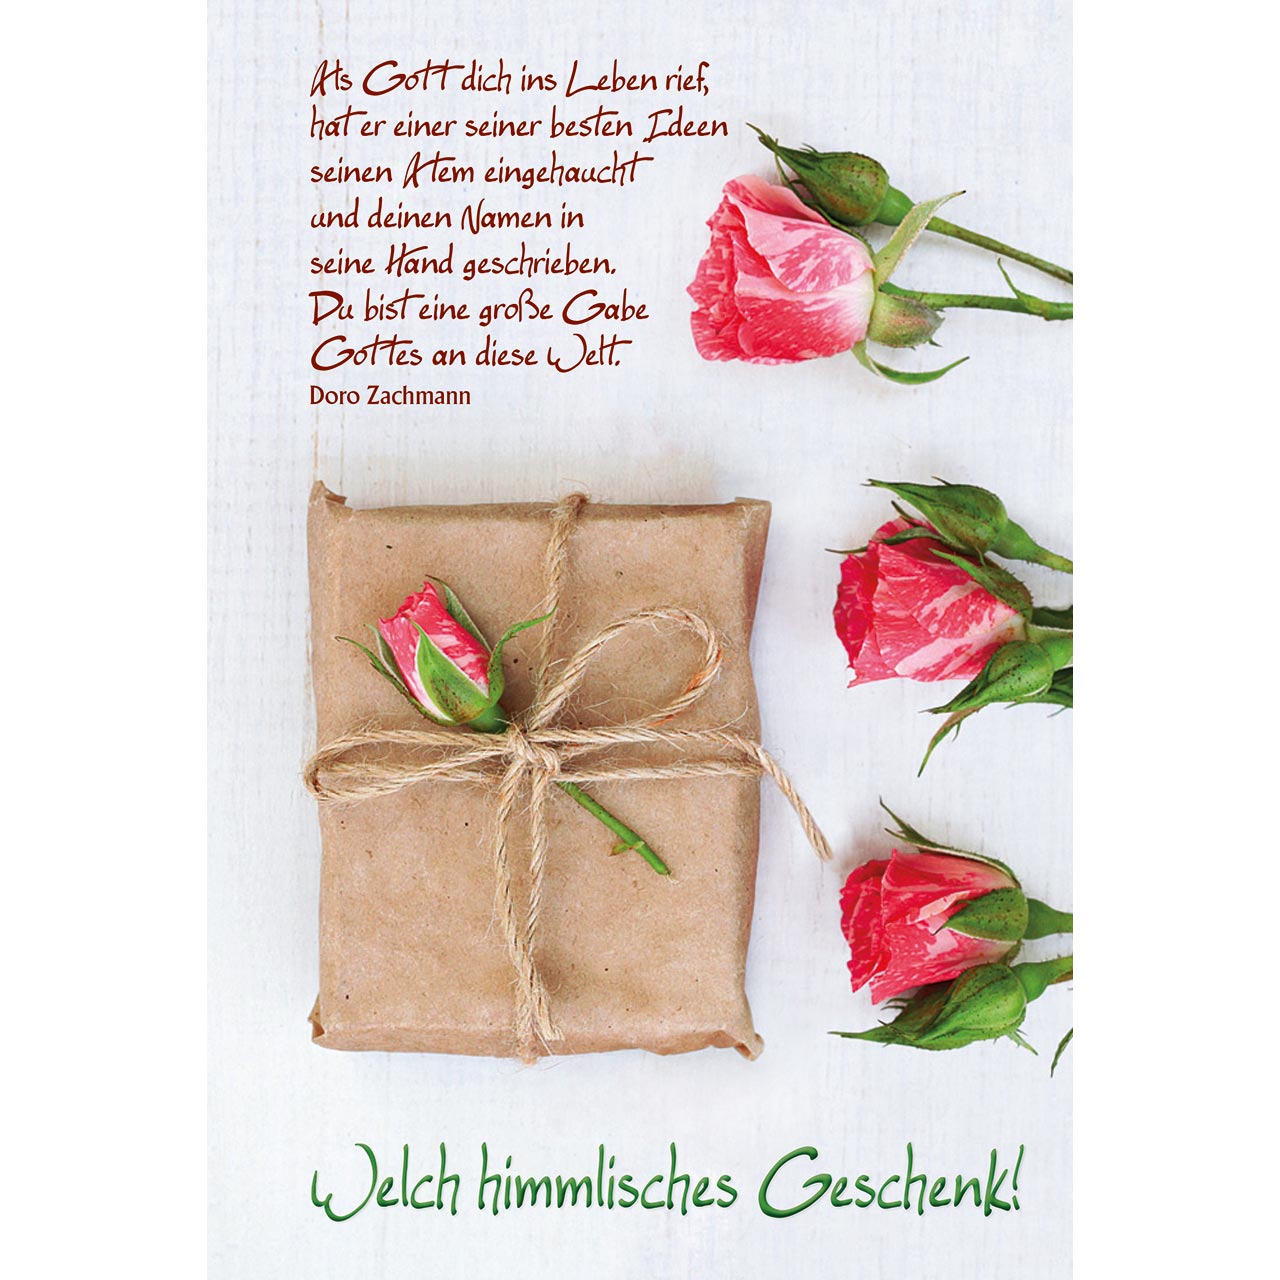 Als Gott dich ins Leben rief,
hat er einer seiner besten Ideen
seinen Atem eingehaucht
und deinen Namen in
seine Hand geschrieben.
Du bist eine große Gabe
Gottes an diese Welt.
Doro Zachmann
Welch himmlisches Geschenk!